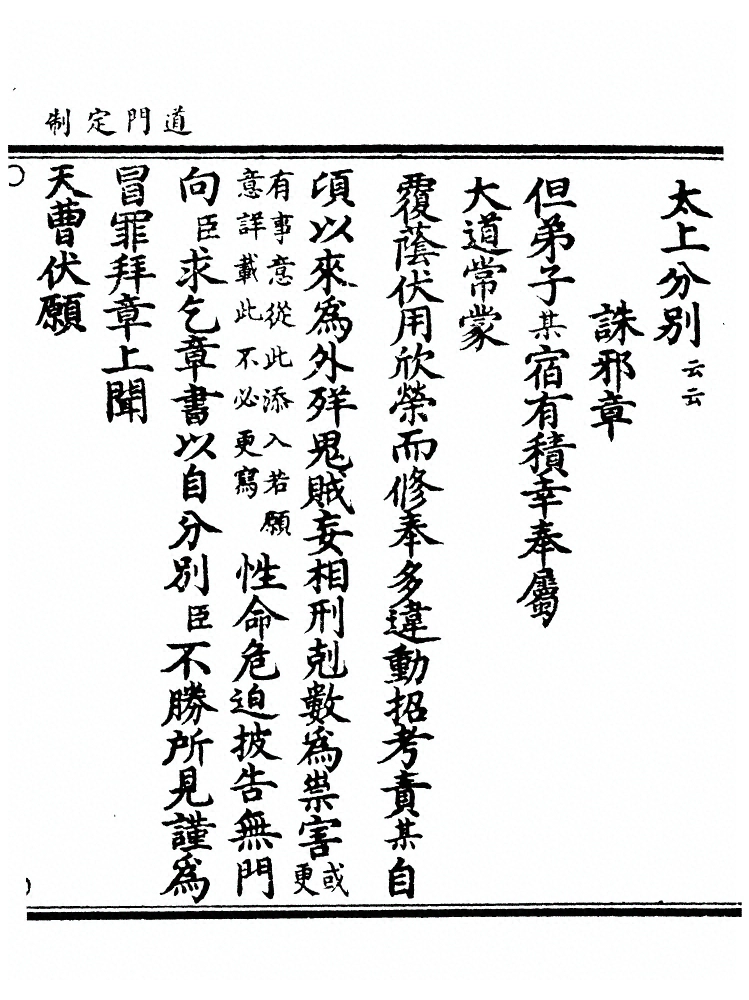 道門定制
太上分別云云
誅邪章
但弟子某宿有積幸奉屬
大道常蒙
覆蔭伏用欣榮而修奉多違動招考責某自
頃以來爲外殃鬼賊妄相刑剋數爲祟害或更
有事意從此添入若願意詳載此不必更寫性命危迫披告無門
向臣求乞章書以自分別臣不勝所見謹爲
冒罪拜章上聞
天曹伏願